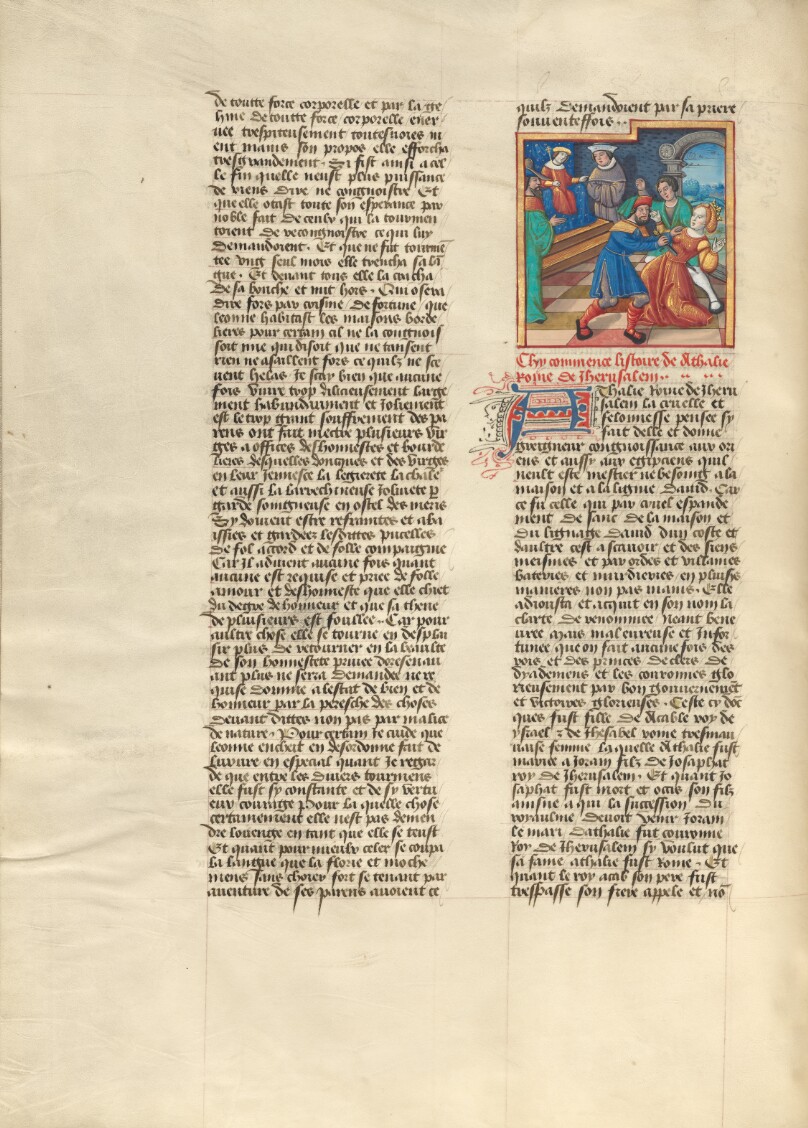 de toutte force corporelle et par la ge
hine de toutte force corporelle ener
uee trespiteusement touteffuoies
ent mains son propos elle efforcha
tresgrandement. Si fist ainsi a cel
le fin quelle neust plus puissance
de riens dire ne congnoistre Et
que elle otast toute son esperance par
noble fait de ceulx qui la tourmen
toient de recongnoistre ce qui luy
demandoient. Et que ne fut tourme
tee vng seul mois elle trencha sa la
gue. Et deuant tous elle la cracha
de sa bouche et mit hors. Qui osera
dire fors par de fortune que
leonne habitast les maisons borde
lieres pour certain cil ne la congnois
soit mie qui disoit que ne tausent
rien ne asaillent fors ce quilz ne sce
uent helas Je scay bien que aucune
fois viure trop dilicieusement large
ment habundamment et Joliement
est le trop grant souffrement des pa
rens ont fait mectre plusieurs vir
ges a offices deshonnestes et bourde
lieres desquelles doncques et des virges
en leur Jennesce la legierete lachale
et aussi la Joliuete p
garde songneuse en ostel des meres
Sy doiuent estre refraintes et aba
issies et gardees lesdittes pucelles
de fol accord et de folle compaignie
Car il aduient aucune fois quant
aucune est requise et priee de folle
amour et deshonneste que elle chiet
du degre de honneur et que sa
de plusieurs est foullee. Car pour
aultre chose elle se tourne en desplai
sir plus de retourner en la beaulte
de son honnestete priuee doresenau
ant plus ne sera demandee ne re
quise Comme a lestat de bien et de
honneur par la peresche des choses
deuant dittes non pas par malice
de nature. Pour certain Je cuide que
leonne encheit en desordonne fait de
luxure en especial quant Je regar
de que entre les diuers tourmens
elle fust sy constante et de sy vertu
eux courage Pour la quelle chose
certainement elle nest pas demen
dre louenge en tant que elle se teust
Et quant pour mieulx celer se coupa
la langue que la florie et moche
mens sans fort se tenant par
auenture de ses parens auoient ce
quilz demandoient par sa priere
souuenteffois..
Chy commence listoire de Athalie
Roine de Jherusalem..
Athalie Roine de Jheru
salem la cruelle et
felonnesse pensee sy
fait delle et donne
greigneur congnoissance aux ori
ens et aussy aux egipciens quil
neult este mestier ne besoing a la
maison et a la lignie dauid. Car
ce fu celle qui par cruel espande
ment de sanc de la maison et
du lignage dauid dun coste et
daultre cest ascauoir et des siens
meismes et par ordes et villaines
bateries et murdrieries en plusrs
manieres non pas mains. Elle
adiousta et acquit en son nom la
clarte de renommee Neant bene
uree mais maleureuse et Infor
tunee que on fait aucune fois des
rois et des princes de clers de
dyademens et les couronnes glo
rieusement par bon gouuernement
et victoires glorieuses. Ceste cy doc
ques fust fille de Acable roy de
ysrael z de Jhesabel roine tresmau
uaise femme laquelle Athalie fust
mariee a Joram filz de Josaphat
roy de Jherusalem. Et quant Jo
saphat fust mort et occis son filz
ainsne a qui la succession du
royaulme deuoit venir Joram
le mari dathalie fut couronne
Roy de Jherusalem sy voulut que
sa fame athalie fust Rome. Et
quant le roy acab son pere fust
trespasse son frere appele et no